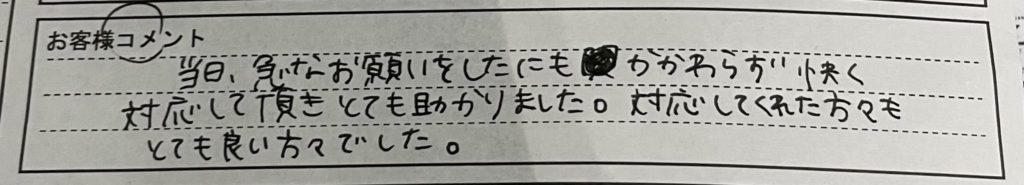 お客様コメント
当日、急なお願いをしたにもかかわらず快く
対応して頂きとても助かりました。対応してくれた方々も
とても良い方々でした。